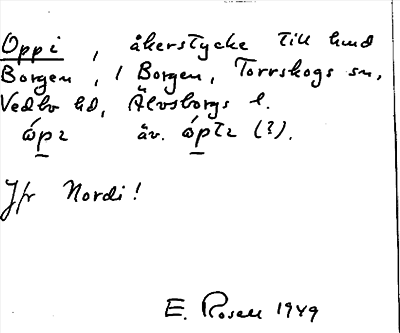 Oppi, åkerstycke till hmd
Borgen, 1 Borgen, Torrskogs sn,
Vedbo hd, Älvsborgs l.
ópı äv. óptı (?).
Jfr Nordi!
E. Rosell 1949